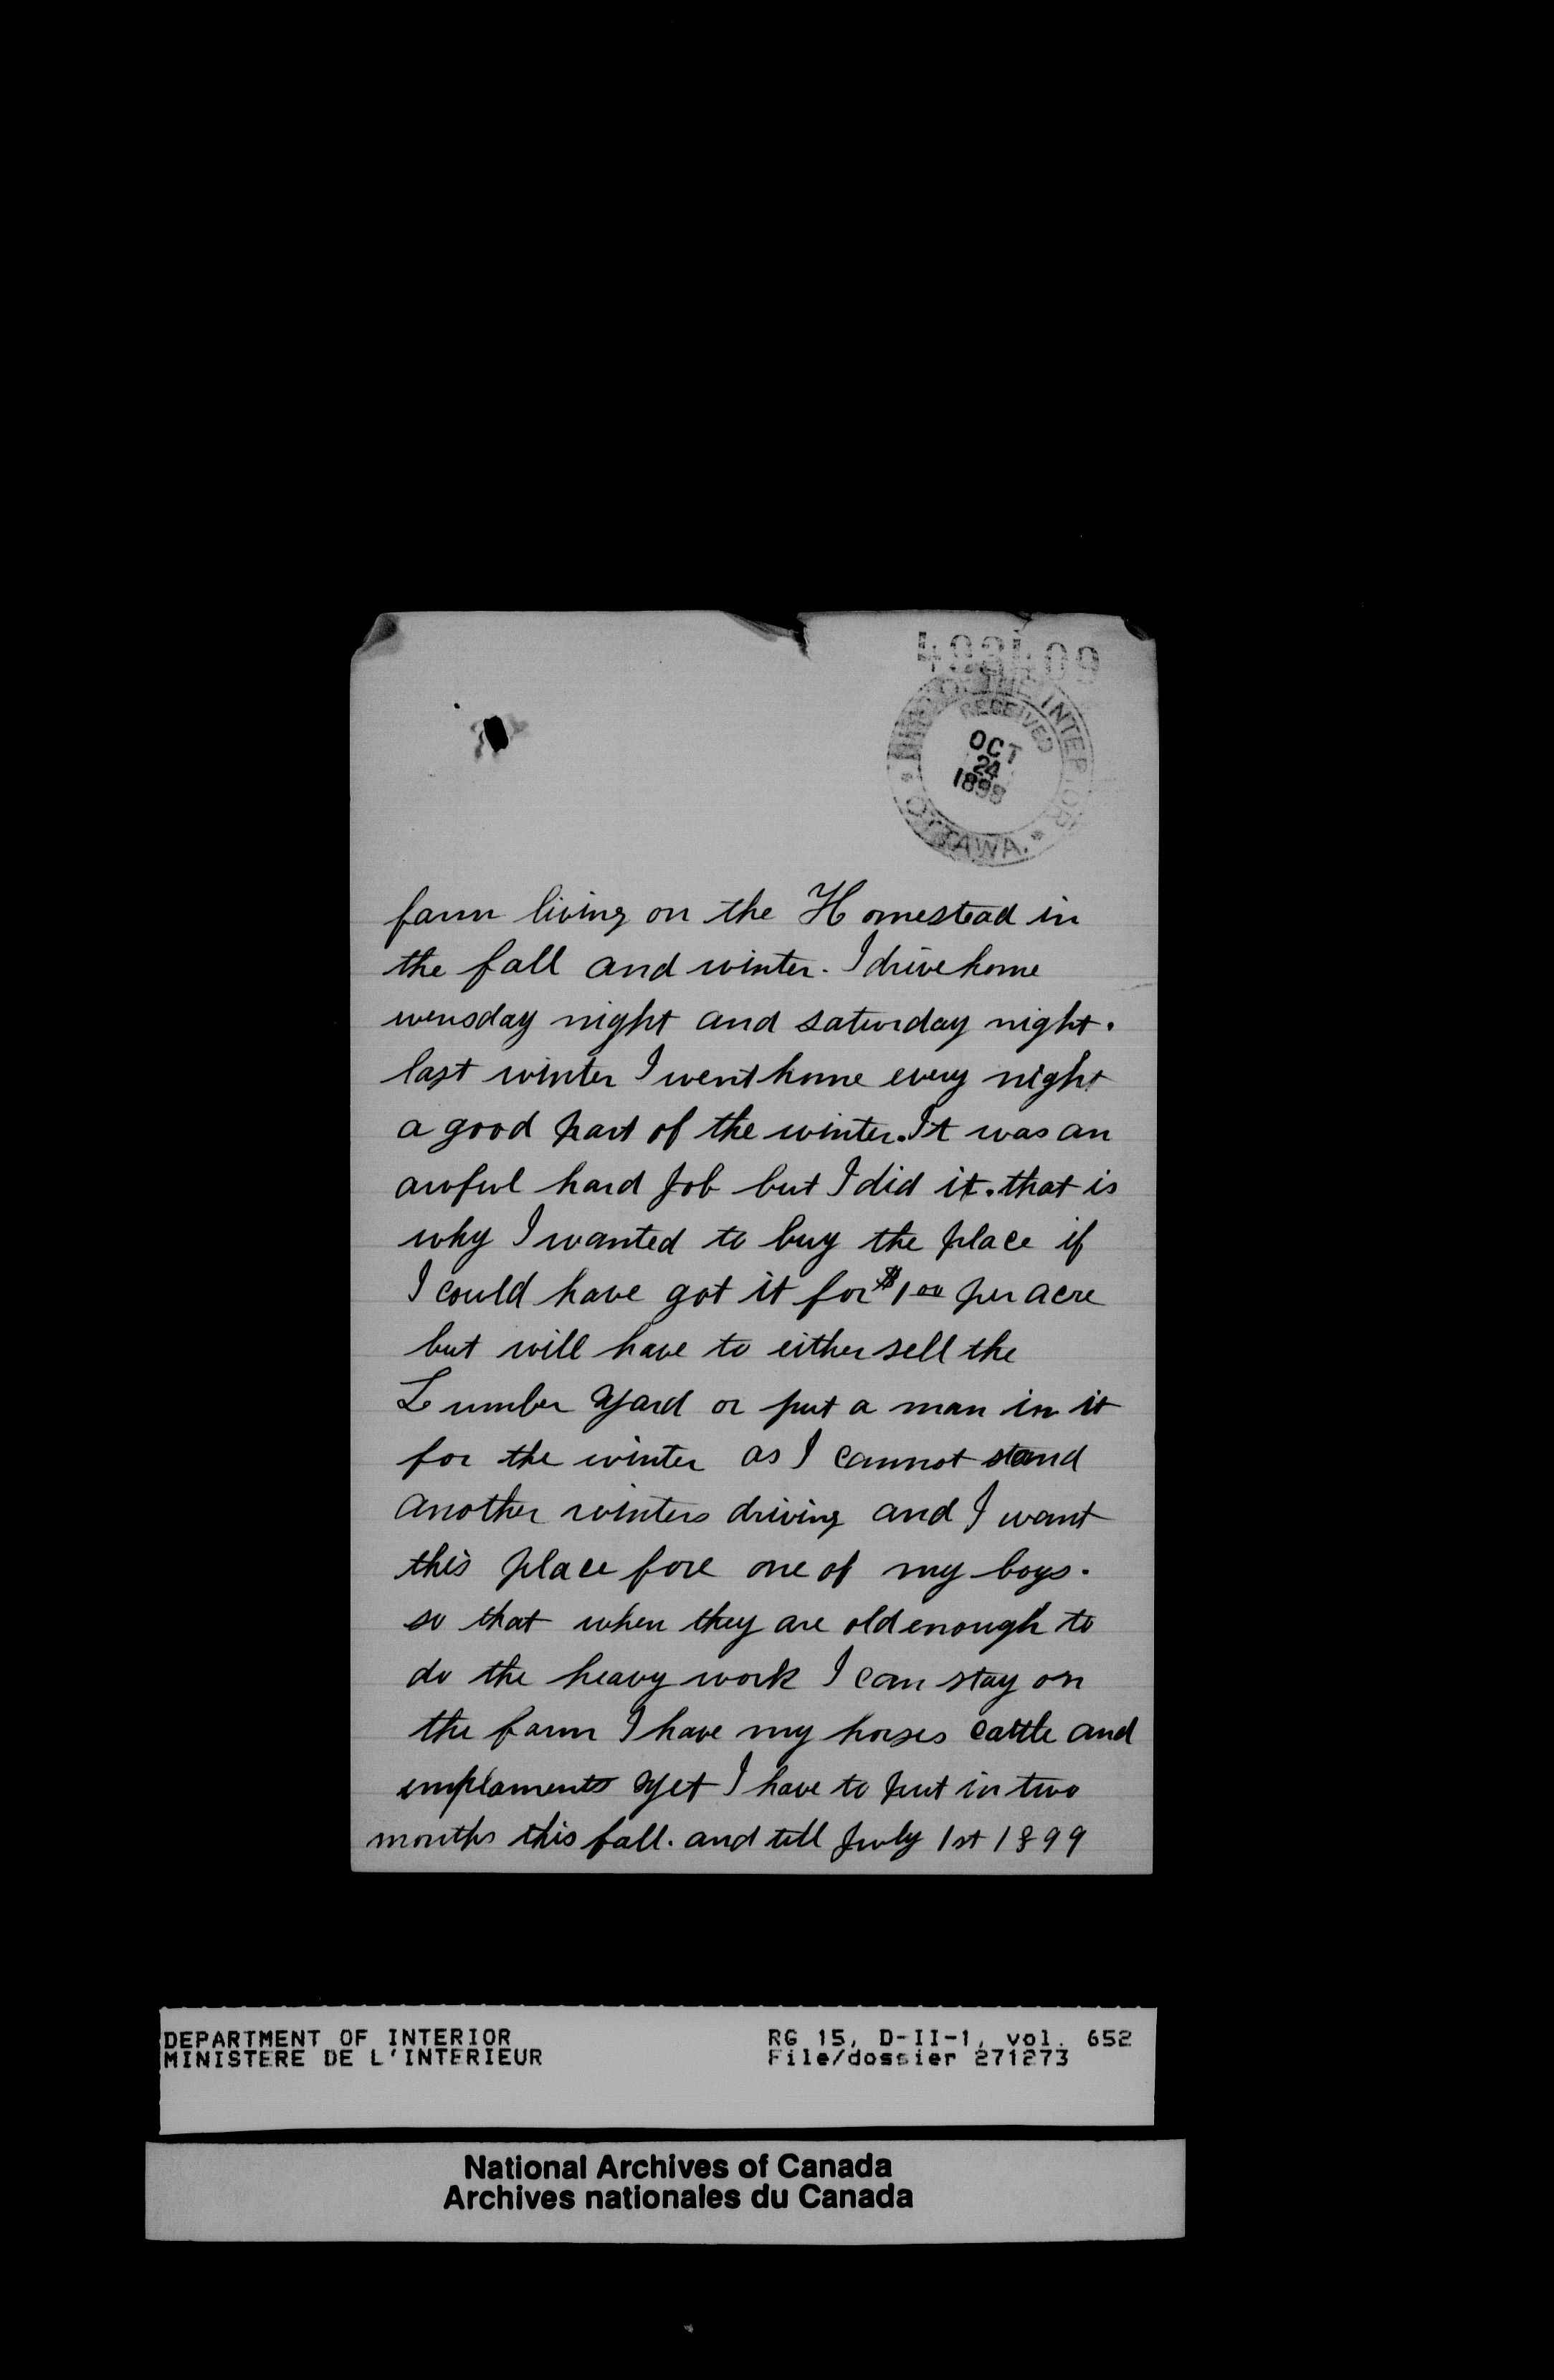 DEPT. OF THE INTERIOR
RECEIVED
OCT
24
1898
OTTAWA.
farm living on the Homestead in
the fall and winter. I drive home
wensday night and saturday night.
last winter I went home every night
a good part of the winter. It was an
awful hard Job but I did it. that is
why I wanted to buy the place if
I could have got it for $1 00 per acre
but will have to either sell the
Lumber Yard or put a man in it
for the winter as I cannot stand
another winters driving and I want
this place fore one of my boys.
so that when they are old enough to
do the heavy work I can stay on
the farm I have my horses cattle and
implaments yet I have to put in two
months this fall. and till July 1st 1899
DEPARTMENT OF INTERIOR RG 15, D-II-1, vol. 652
MINISTERE DE L'INTERIEUR File/dossier 271273
National Archives of Canada
Archives nationales du Canada